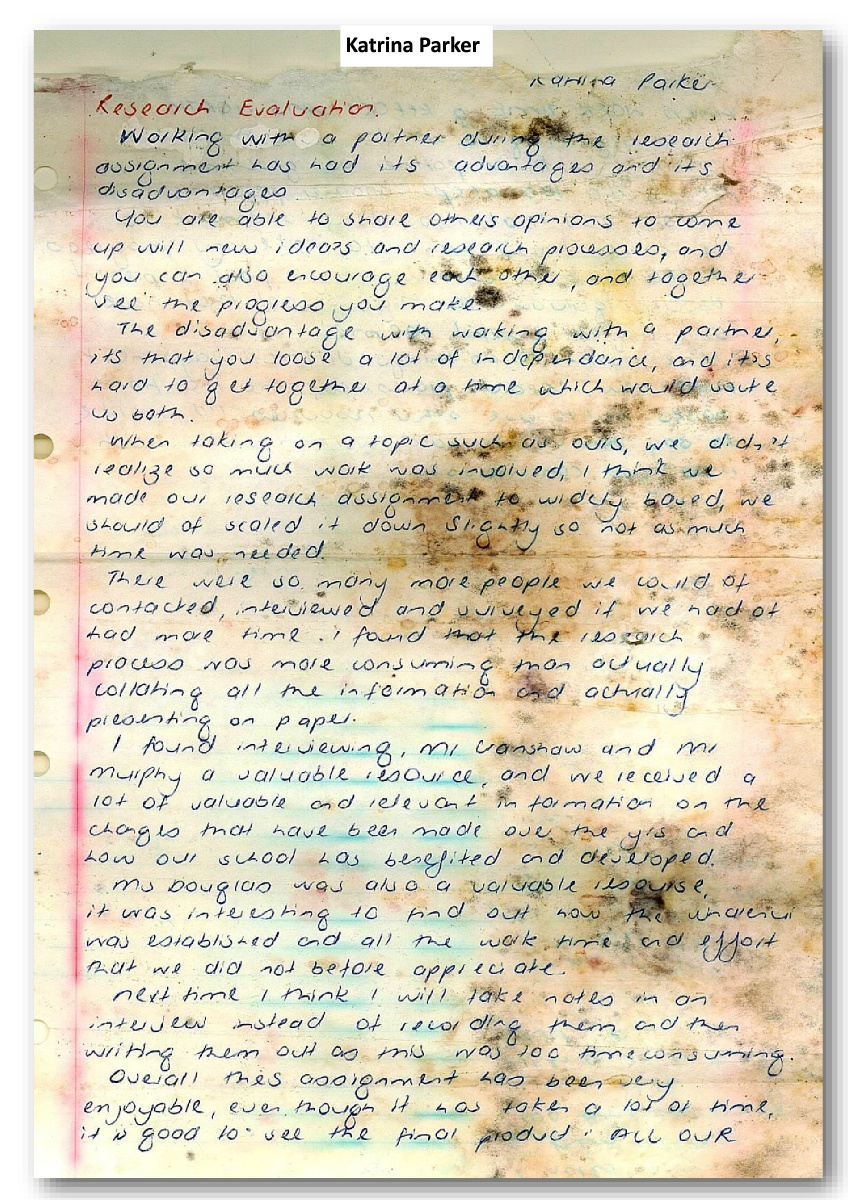 Katrina Parker
Katrina Parker
Research Evaluation.
Working with a partner during the research
assignment has had its advantages and its
disadvantages
You are able to share others opinions to come
up will new ideas and research processes, and
you can also encourage each other, and together
see the progress you make.
The disadvantage with working with a partner,
its that you loose a lot of independance, and its
hard to get together at a time which would
us both.
When taking on a topic such as ours, we didn't
realize so much work was involved, I think we
made our research assignment to widely based, we
should of scaled it down slightly so not as much
time was needed
There were so many more people we could of
contacted, interviewed and surveyed if we had of
had more time. I found that the research
process was more consuming than actually
collating all the information and actually
presenting on paper.
I found interviewing, Mr Cranshaw and Mr
Murphy a valuable resource, and we received a
lot of valuable and relevant information on the
changes that have been made over the yrs and
how our school has benefited and developed.
Ms Douglas was also a valuable resourse,
it was interesting to find out how the
was established and all the work, time and effort
that we did not before appreciate.
Next time I think I will take notes in an
interview instead of recording them and then
writing them out as this was too timeconsuming.
Overall this assignment has been very
enjoyable, even though it has taken a lot of time,
it is good to see the final product. ALL OUR